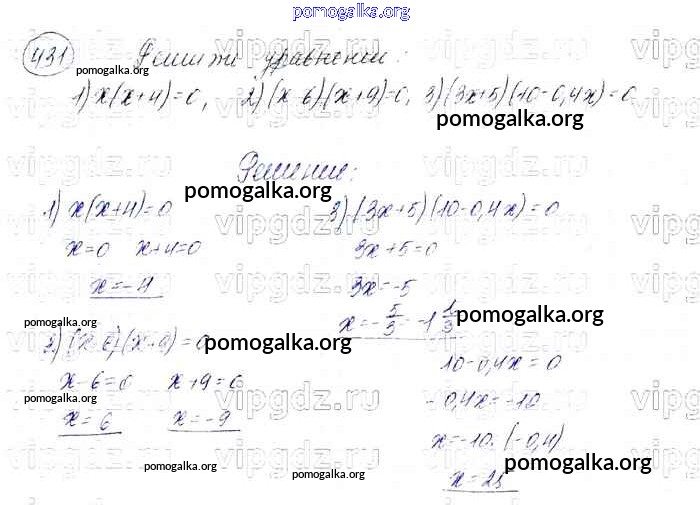 pomogalka.org
431 Решите уравнение:
1) x(x+4)=0, 2) (x-6)(x+9)=0, 3) (3x+5)(10-0,4x)=0
Решение:
1) x(x+4)=0
x=0 x+4=0
x=-4
2) (x-6)(x+9)=0
x-6=0 x+9=0
x=6 x=-9
3) (3x+5)(10-0,4x)=0
3x+5=0
3x=-5
x=-5/3 -1 1/3
10-0,4x=0
-0,4x=-10
x=-10:(-0,4)
x=25
pomogalka.org
pomogalka.org
pomogalka.org
pomogalka.org
pomogalka.org
pomogalka.org
pomogalka.org
pomogalka.org
pomogalka.org
pomogalka.org
vipgdz.ru